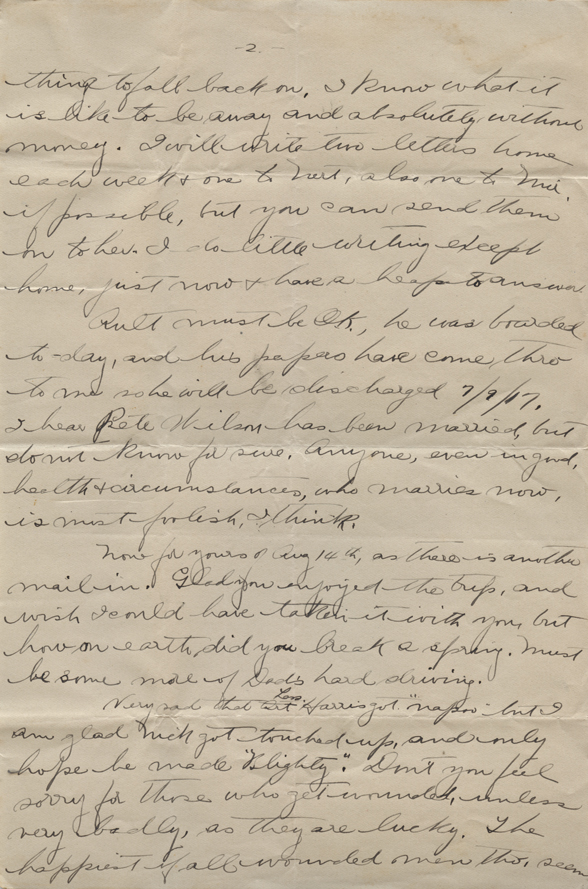 -2.-
thing to fall back on. I know what it
is like to be away and absolutely without
money. I will write two letters home
each week & one to , also one to
if possible, but you can send them
on to her. I do little writing except
home, just now & have a heap to answer
Ault must be Ok, he was boarded
to-day, and his papers have come thro
to me so he will be discharged 7/9/17.
I hear Pete Wilson has been married, but
do not know for sure. Anyone, even in good,
health & circumstances, who marries now,
is most foolish, I think.
Now for yours of Aug 14th, as there is another
mail in. Glad you enjoyed the trip, and
wish I could have taken it with you, but
how on earth, did you break a spring. Must
be some more of Dads hard driving.
Very sad that Harris got "napoo" but I
am glad got touched up, and only
hope he made "Blighty". Don't you feel
sorry for those who get wounded, unless
very badly, as they are lucky. The
happiest of all wounded men tho, seem